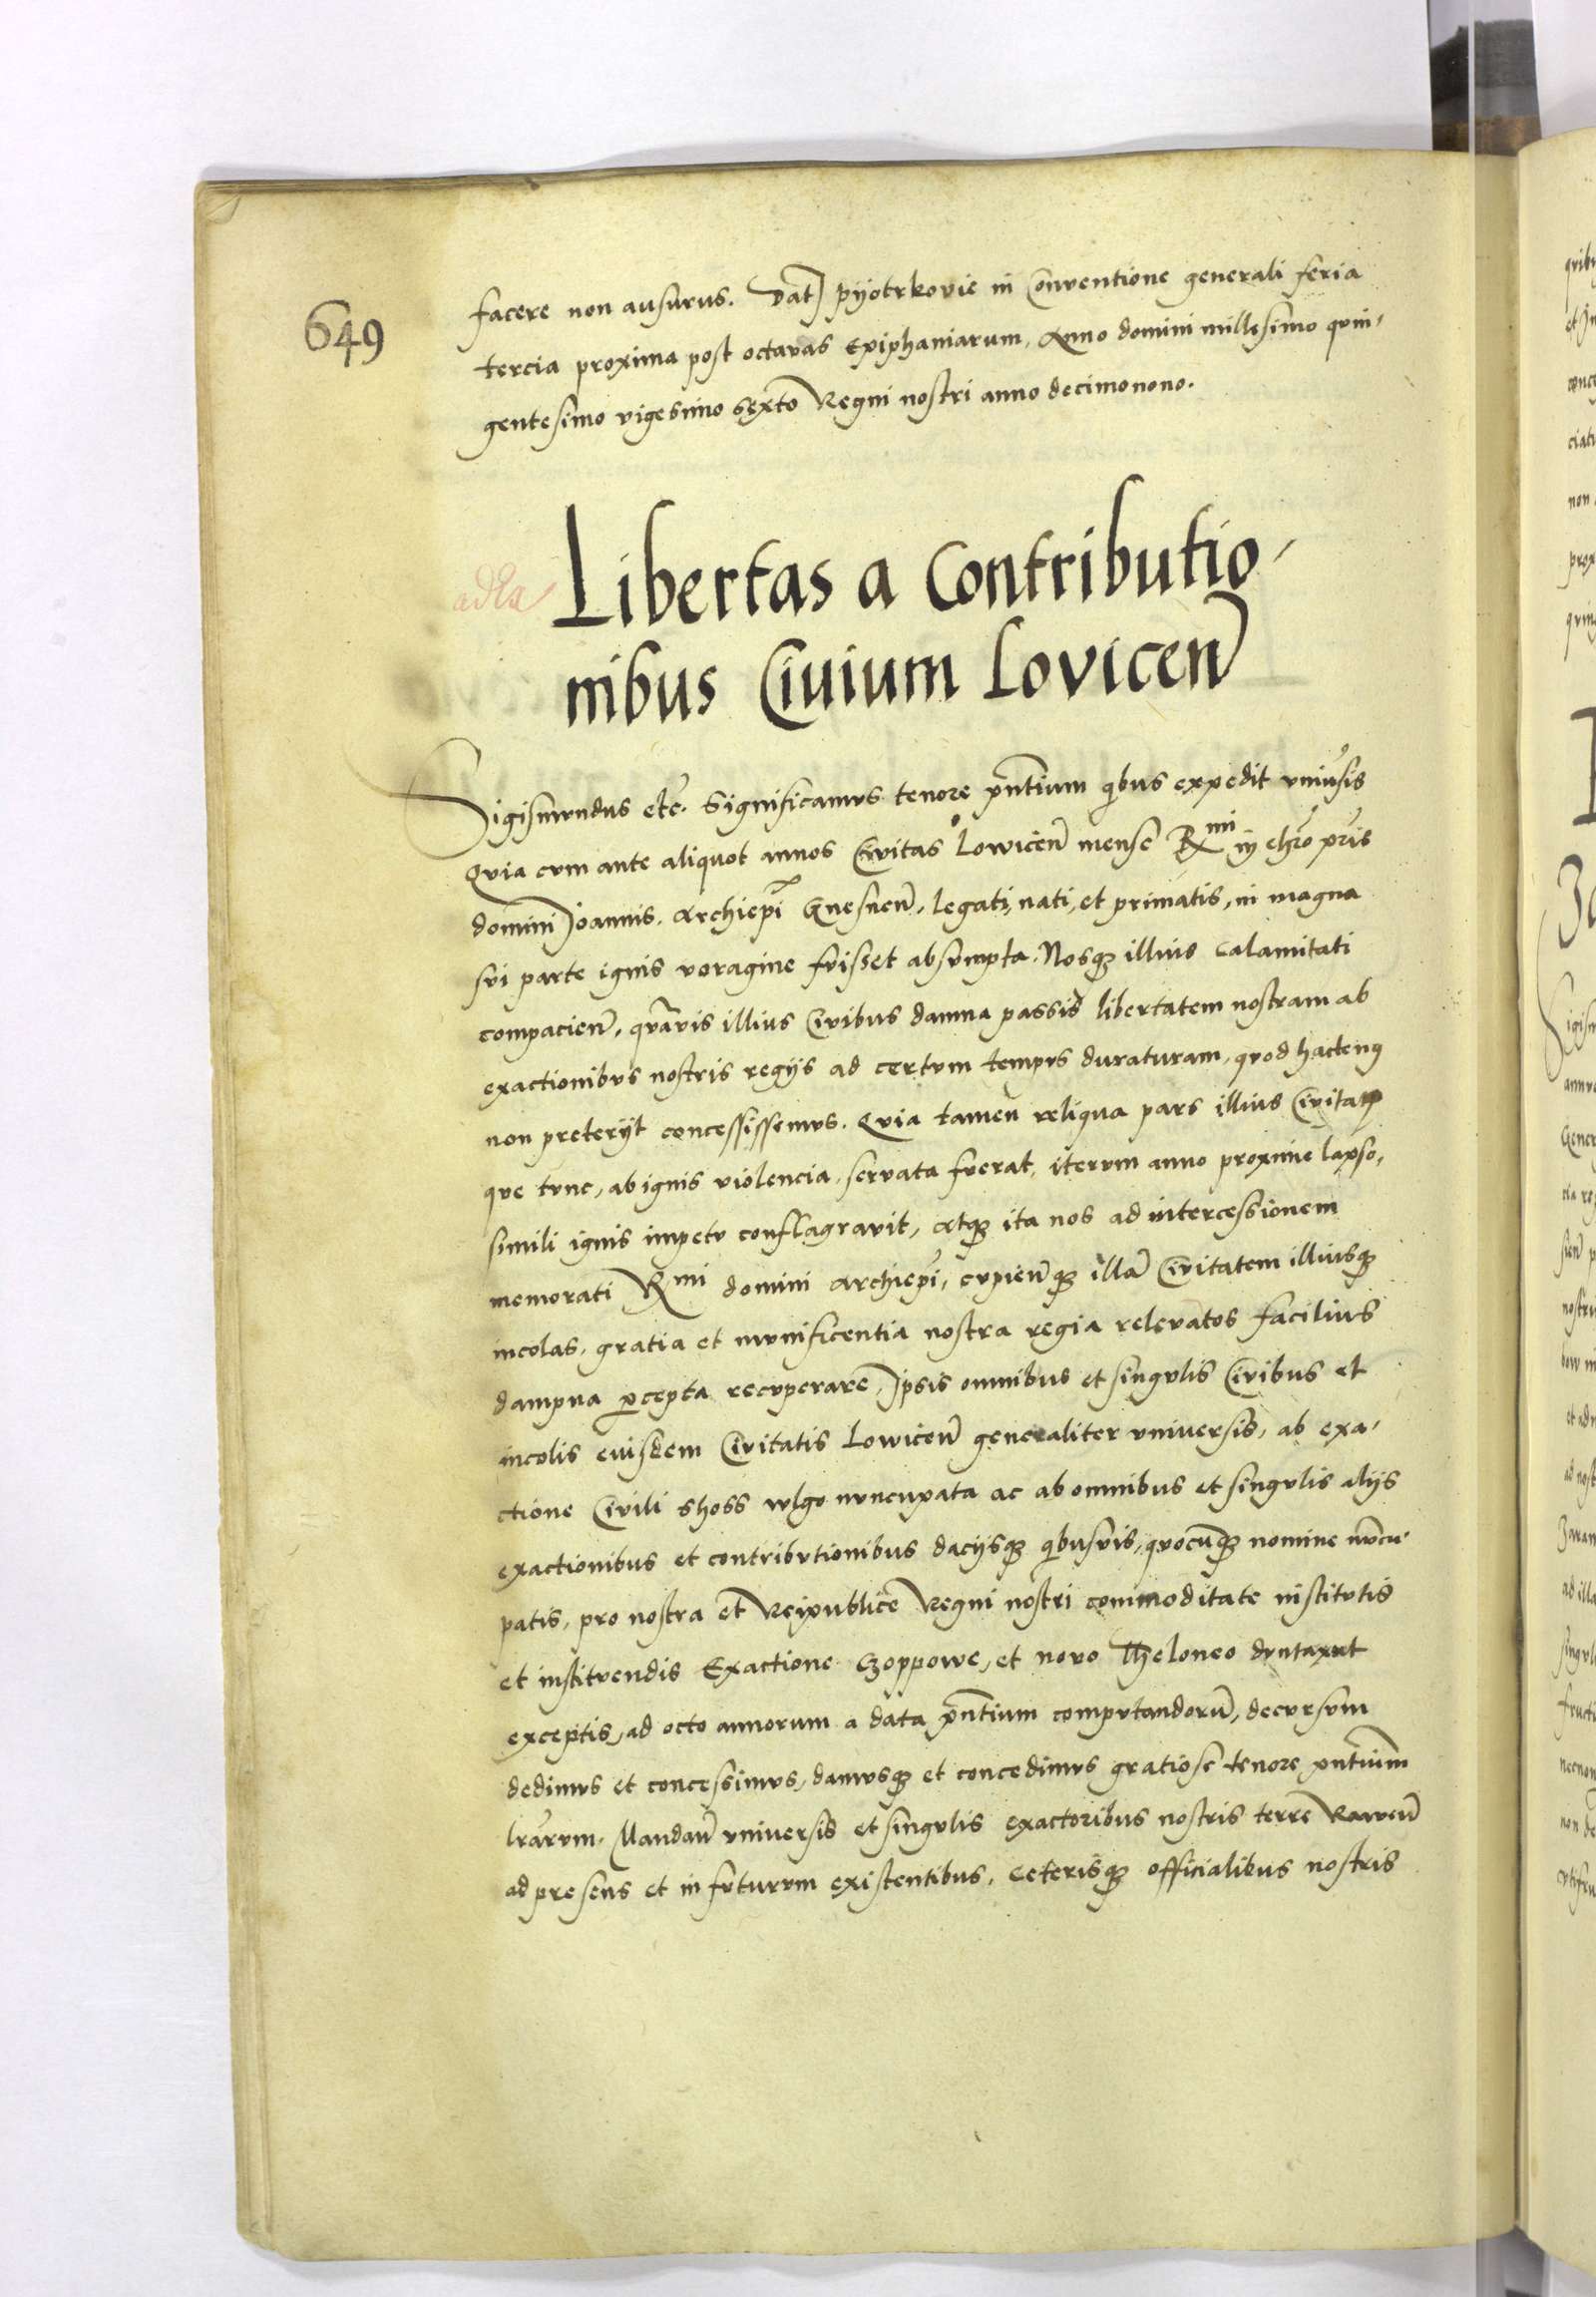 649
facere non ausurus. Dat Pyotrkovie in Conventione generali feria
tercia proxima post octavas Epiphaniarum, Anno domini millesimo quin-
gentesimo vigesimo sexto Regni nostri anno decimonono.
Libertas a Contributio-
nibus Civium Lovicen̄
Sigismundus etc̄. Significamus tenore pn̄tium qibus expedit univ̄sis
Quia cum ante aliquot annos Civitas Lowicen̄ mense Rmi in chro pr̄is
domini Joannis. Archiepi Gnesnen̄, legati, nati, et primatis, in magna
sui parte ignis voragine fuisset absumpta. Nosq3 illius calamitati
compacien̄, qua̅vis illius Civibus damna passis libertatem nostram ab
exactionibus nostris regijs ad certum tempus duraturam, quod hacteng
non preterijt concessissemus. Quia tamen reliqua pars illius Civitatis
que tunc, ab ignis violencia, servata fuerat, iterum anno proxime lapso,
simili ignis impetu conflagravit, atq3 ita nos ad intercessionem
memorati Rmi domini Archiepi, cupien̄q3 illā Civitatem illiusq3
incolas, gratia et munificentia nostra regia relevatos facilius
dampna p̱cepta recuperare, Ipsis omnibus et singulis Civibus et
incolis eiusdem Civitatis Lowicen̄ generaliter universis, ab exa-
ctione Civili shoss wlgo nuncupata ac ab omnibus et singulis alijs
exactionibus et contributionibus dacijsq3 qibusvis, quocūq3 nomine nūcu-
patis, pro nostra et Reipublice Regni nostri commoditate institutis
et instituendis Exactione Czoppowe, et novo Theloneo duntaxat
exceptis, ad octo annorum a data pn̄tium computandorū, decursum
dedimus et concessimus, damusq3 et concedimus gratiose tenore pn̄tium
lr̄arum. Mandan̄ universis et singulis exactoribus nostris terre Raven̄
ad presens et in futurum existentibus, Ceterisq3 officialibus nostris